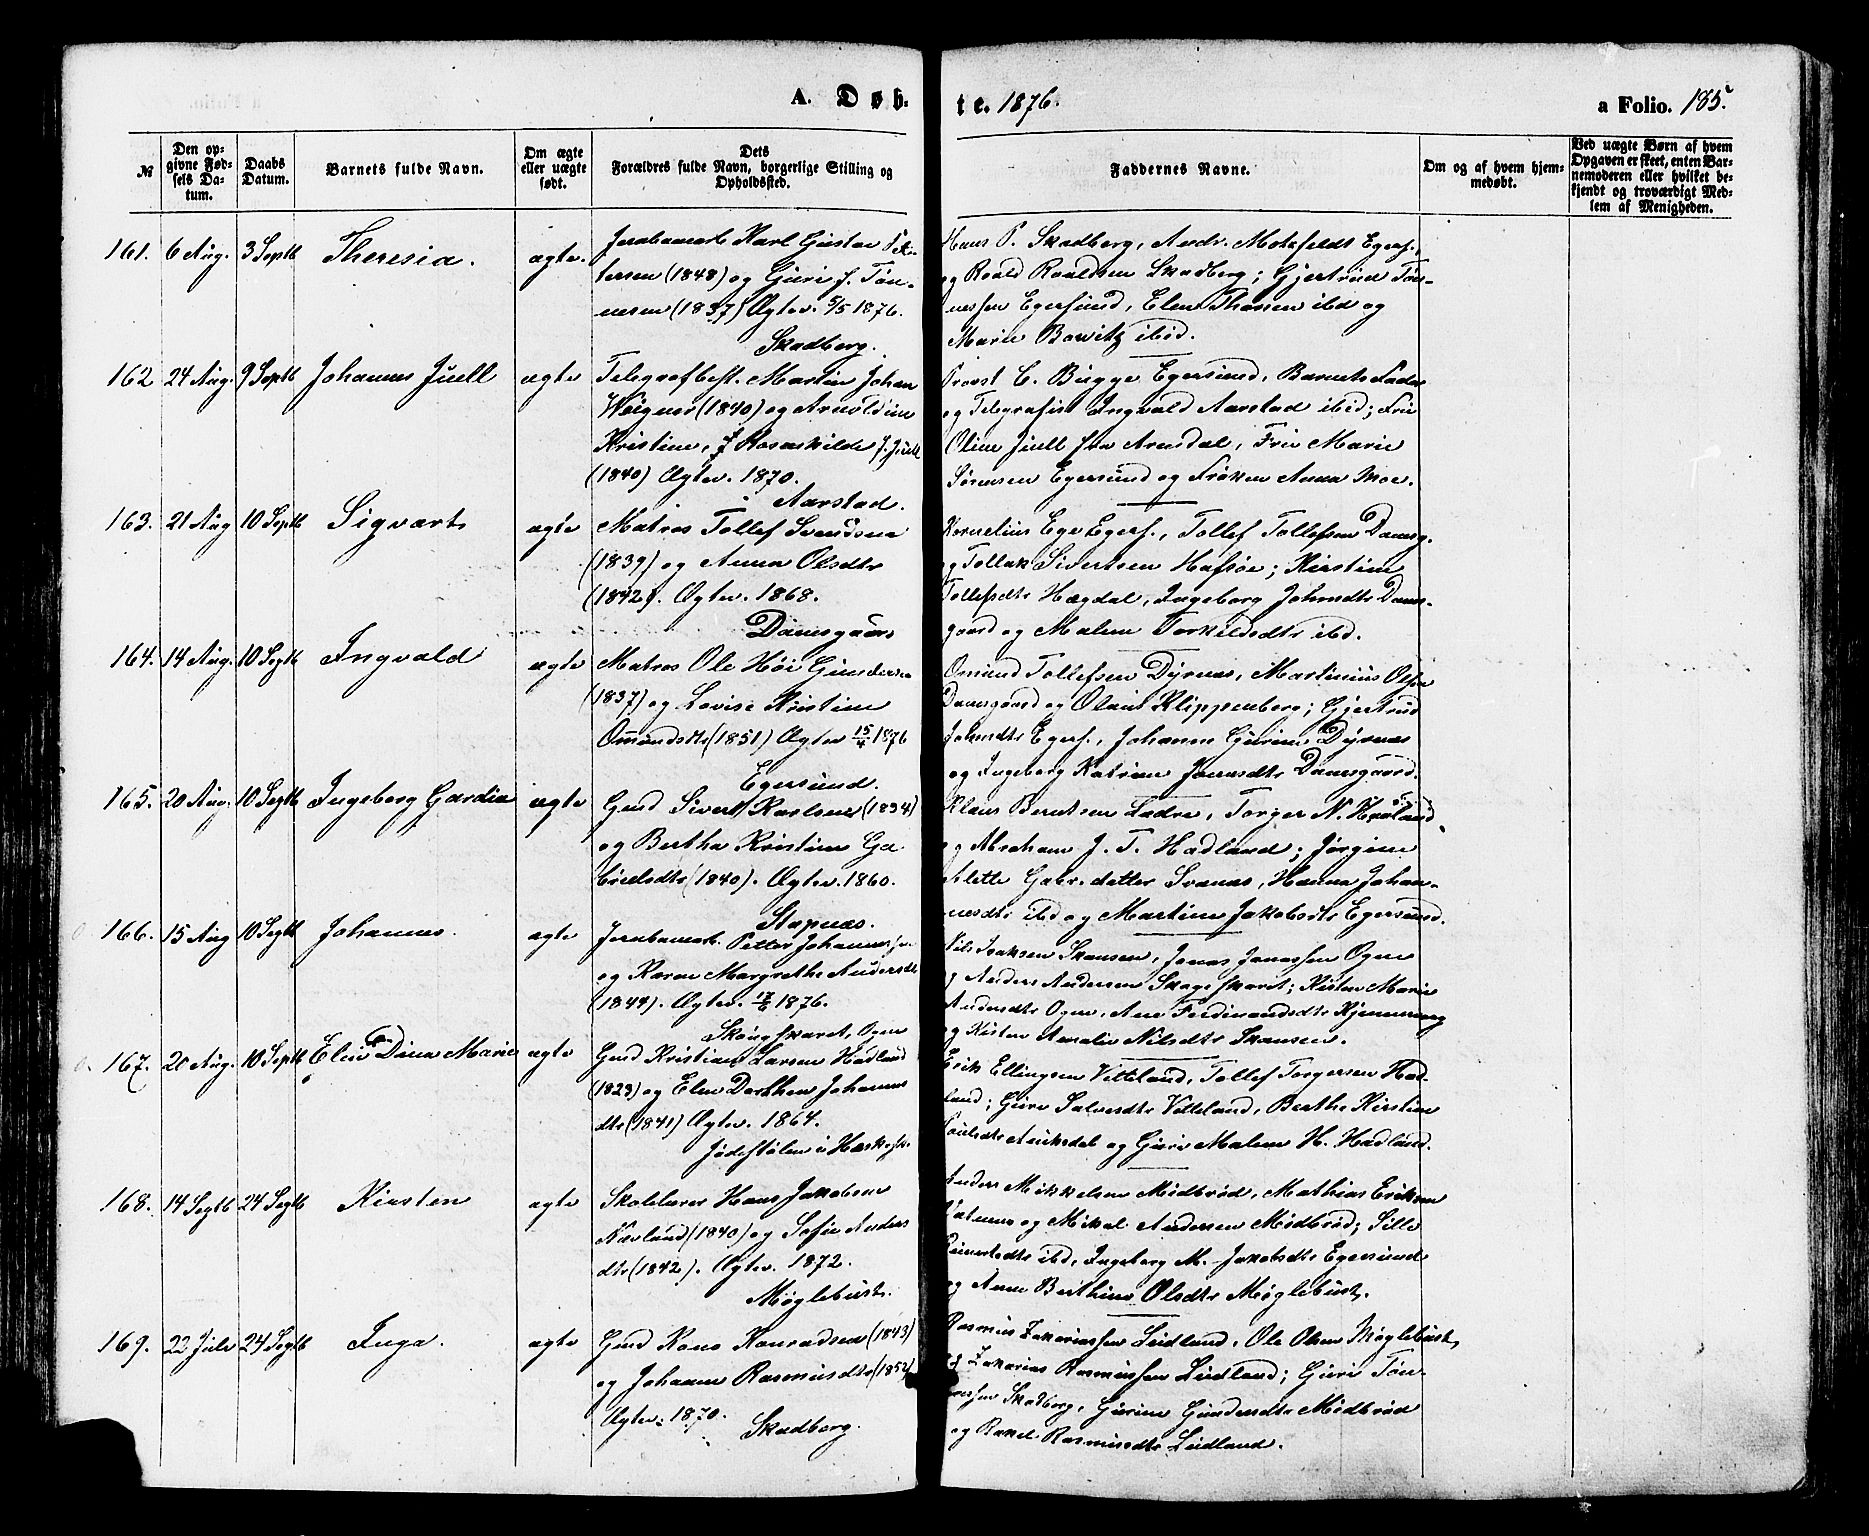 A. Døb-
te. 1876.
a Folio. 185.
№
Den op-
givne Fød-
sels Da-
tum.
Daabs
Datum.
Barnets fulde Navn.
Om ægte
eller uægte
født.
Dets
Forældres fulde Navn, borgerlige Stilling og
Opholdssted.
Faddernes Navne.
Om og af hvem hjem-
medøbt.
Ved uægte Børn af hvem
Opgaven er skeet, enten Bar-
nemoderen eller hvilket be-
kjendt og troværdigt Med-
lem af Menigheden.
161. 6 Aug. 3 Septb Theresia. ægte.
Jernbanearb. Karl Gustav Pet-
tersen (1848) og Guri J. Tøn-
nesen (1837) Ægtev. 5/5 1876.
Skadberg.
Hans P. Skadberg, Andr. Motzfeldt Egers.,
og Roald Roaldsen Skadberg; Gjertrud Tøn-
nessen Egersund, Elen Thorsen ibd og
Marie Bowitz ibid.
162 24 Aug. 9 Septb Johannes Juell ægte
Telegrafbest. Martin Johan
Weigner (1840) og Arnoldine
Kristine, f. Rosenkilde J. Juell
(1840) Ægtev. 1870.
Aarstad.
Provst C. Bugge Egersund, Barnets Fader
og Telegrafist Ingvald Aarstad ibid; Fru
Oline Juell fra Arendal, Fru Marie
Sørensen Egersund og Frøken Anna Moe.
163. 21 Aug 10 Septb Sigvart ægte
Matros Tollef Svendsen
(1839) og Anna Olsdtr
(1842). Ægtev. 1868.
Damsgaard
Kornelius Ege Egers., Tollef Tollefsen Damsg.
og Tollak Sivertsen Hafsøe; Kirstine
Tollefsdtr Hægdal, Ingeborg Johnsdtr Dams-
gaard og Malene Torkildsdtr ibd.
164. 14 Aug. 10 Septb Ingvald ægte
Matros Ole Høi Gundersen
(1837) og Lovise Kristine
Omundsdtr (1851) Ægtev 15/4 1876
Egersund.
Omund Tollefsen Dyrnæs, Martinius Olsen
Damsgaard og Olaus Klippenberg; Gjertrud
Johnsdtr Egers., Johanne Gurine Dyrnæs
og Ingeborg Katrine Jonasdtr Damsgaard.
165. 20 Aug. 10 Septb Ingeborg Gardia ægte
Gmd Sivert Karlsen (1834)
og Bertha Kristine Ga-
brielsdtr (1840). Ægtev. 1860.
Stapnæs.
Klaus Berntsen Ladre, Torger N. Havland
og Abraham J. T. Hadland; Jørgine
Alette Gabr. datter Svanæs, Hanna Johan-
nesdtr ibd og Martine Jakobsdtr Egersund.
166. 15 Aug 10 Septb Johannes. ægte
Jernbanearb. Petter Johannessen
og Karen Margrethe Andersdtr
(1849). Ægtev. 1876.
Skaugskaret, Ogne
Nils Isaksen Skansen, Jonas Jonassen Ogne
og Anders Andersen Skogeskaret; Kirsten Marie
Andersdtr Ogne, Ane Ferdinandsdtr
og Kirsten Amalie Nilsdtr Skansen.
167. 20 Aug. 10 Septb Elen Dina Marie ægte
Gmd Kristian Larsen Hadland
(1823) og Elen Dorthea Johannes-
dtr (1841) Ægtev. 1864.
Jødestølen i
Erik Ellingsen Vetteland, Tollef Torgersen Had-
land; Guri Salvesdtr Vetteland, Berthe Kirstine
og Guri Malene H. Hadland.
168. 14 Septb 24 Septb Kirsten ægte
Skolelærer Hans Jakobsen
Nævland (1840) og Sofie Anders
dtr (1842). Ægtev. 1872.
Møglebust.
Anders Mikkelsen Midbrød, Mathias Eriksen
og Mikal Andersen Midbrød; Sille
ibd, Ingeborg M. Jakobsdtr Egersund
og Anne Berthine Olsdtr Møglebust.
169. 22 Juli 24 Septb Inga. ægte
Gmd Kono Konradsen (1843)
og Johanne Rasmusdtr (1852)
Ægtev. 1870.
Skadberg.
Rasmus Zakariassen Leidland, Ole Olsen Møglebust,
og Zakarias Rasmussen Leidland; Guri Tøn-
nessen Skadberg, Gurine Gundersdtr Midbrød
og Rakel Rasmusdtr Leidland.